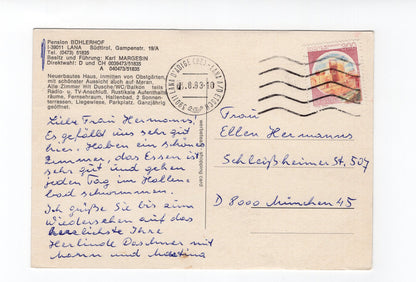 Pension BÜHLERHOF
I-39011 LANA Südtirol, Gampenstr. 18/A
Tel. (0473) 51835
Besitz und Führung: Karl MARGESIN
Direktwahl: D und CH 0039473/51835
A 040473/51835
Neuerbautes Haus, inmitten von Obstgärten,
mit schönster Aussicht auch auf Meran.
Alle Zimmer mit Dusche/WC/Balkon teils
Radio- u. TV-Anschluß. Rustikale Aufenthalts-
räume, Fernsehraum, Hallenbad, 2 Sonnen-
terrassen, Liegewiese, Parkplatz. Ganzjährig
geöffnet.
Liebe Frau Hermanns!
Es gefällt uns sehr gut
hier. Haben ein schönes
Zimmer, das Essen ist
sehr gut und gehen
jeden Tag im Hallen-
bad schwimmen.
Ich grüße Sie bis zum
Wiedersehen auf das
herzlichste Ihre
Herlinde mit
Mann und Martina
8.93-18
Frau
Ellen Hermanns
Schleißheimer St. 507
D 8000 München 45